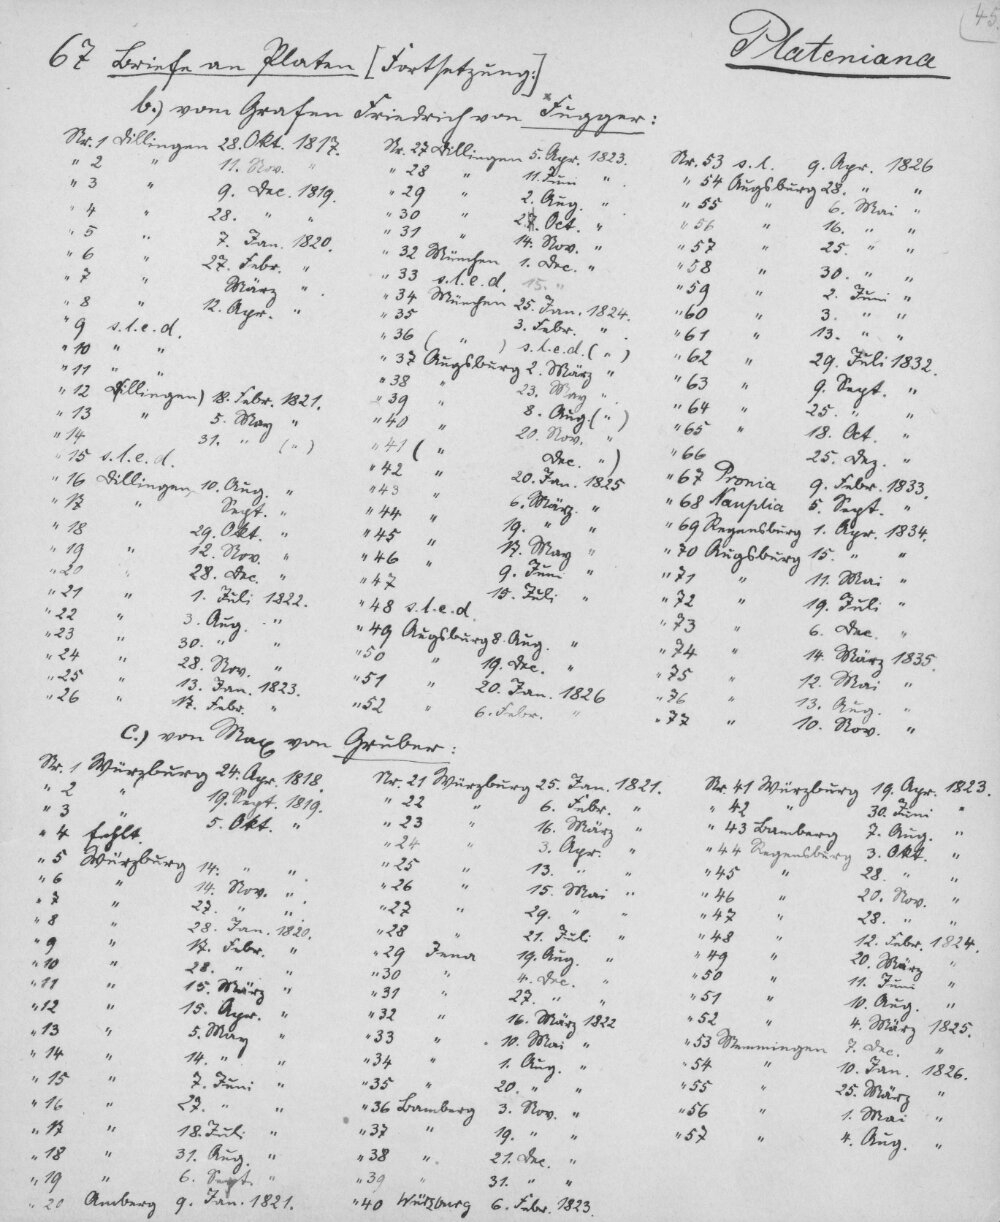 45.
Plateniana
67 Briefe an Platen [Fortsetzung:]
b.) vom Grafen Friedrich von *Fugger:
Nr. 1 Dillingen 28. Okt. 1817.
" 2 " 11. Nov. "
" 3 " 9. Dec. 1819.
" 4 " 28. " "
" 5 " 7. Jan. 1820.
" 6 " 27. Febr. "
" 7 " März "
" 8 " 12. Apr. "
" 9 s.l.e.d.
" 10 " "
" 11 " "
" 12 Dillingen) 18. Febr. 1821.
" 13 " 5. May "
" 14 31. " (")
" 15 s.l.e.d.
" 16 Dillingen, 10. Aug. "
" 17 " Sept. "
" 18 29. Okt. "
" 19 " 12. Nov. "
" 20 " 28. Dec. "
" 21 " 1. Juli 1822.
" 22 " 3. Aug. "
" 23 " 30. " "
" 24 " 28. Nov. "
" 25 " 13. Jan. 1823.
" 26 " 17. Febr. "
Nr. 27 Dillingen 5. Apr. 1823.
" 28 " 11. Juni "
" 29 " 2. Aug. "
" 30 " 27. Oct. "
" 31 " 14. Nov. "
" 32 München 1. Dec. "
" 33 s.l.e.d. 15. "
" 34 München 25. Jan. 1824.
" 35 3. Febr. "
" 36 ( " ) s.l.e.d. ( " )
" 37 Augsburg 2. März "
" 38 " 23. May "
" 39 " 8. Aug ( " )
" 40 " 20. Nov. "
" 41 ( " Dec. " )
" 42 " 20. Jan. 1825
" 43 " 6. März. "
" 44 " 19. " "
" 45 " 17. May "
" 46 " 9. Juni "
" 47 15. Juli "
" 48 s.l.e.d.
" 49 Augsburg 8. Aug. "
" 50 " 19. Dec. "
" 51 " 20. Jan. 1826
" 52 " 6. Febr. "
Nr. 53 s.l. 9. Apr. 1826
" 54 Augsburg 28. " "
" 55 " 6. Mai "
" 56 " 16. " "
" 57 " 25. " "
" 58 " 30. " "
" 59 " 2. Juni "
" 60 " 3. " "
" 61 " 13. " "
" 62 " 29. Juli 1832.
" 63 " 9. Sept. "
" 64 " 25. " "
" 65 " 18. Oct. "
" 66 25. Dez. "
" 67 Pronia 9. Febr. 1833.
" 68 Nauplia 5. Sept. "
" 69 Regensburg 1. Apr. 1834.
" 70 Augsburg 15. " "
" 71 " 11. Mai "
" 72 " 19. Juli "
" 73 " 6. Dec. "
" 74 " 14. März 1835.
" 75 " 12. Mai "
" 76 " 13. Aug. "
" 77 " 10. Nov. "
c.) von Max von Gruber:
Nr. 1 Würzburg 24. Apr. 1818.
" 2 " 19. Sept. 1819.
" 3 " 5. Okt. "
" 4 fehlt.
" 5 Würzburg 14. " "
" 6 " 14. Nov. "
" 7 " 27. " "
" 8 " 28. Jan. 1820.
" 9 " 17. Febr. "
" 10 " 28. " "
" 11 " 15. März "
" 12 " 15. Apr. "
" 13 " 5. May "
" 14 " 14. " "
" 15 " 7. Juni "
" 16 " 27. " "
" 17 " 18. Juli "
" 18 " 31. Aug. "
" 19 " 6. Sept. "
" 20 Amberg 9. Jan. 1821.
Nr. 21 Würzburg 25. Jan. 1821.
" 22 " 6. Febr. "
" 23 " 16. März "
" 24 " 3. Apr. "
" 25 " 13. " "
" 26 " 15. Mai "
" 27 " 29. " "
" 28 " 21. Juli "
" 29 Jena 19. Aug. "
" 30 " 4. Dec. "
" 31 " 27. " "
" 32 " 16. März 1822
" 33 " 10. Mai "
" 34 " 1. Aug. "
" 35 " 20. " "
" 36 Bamberg 3. Nov. "
" 37 " 19. " "
" 38 " 21. Dec. "
" 39 " 31. " "
" 40 Würzburg 6. Febr. 1823.
Nr. 41 Würzburg 19. Apr. 1823.
" 42 " 30. Juni "
" 43 Bamberg 7. Aug. "
" 44 Regensburg 3. Okt. "
" 45 " 28. " "
" 46 " 20. Nov. "
" 47 " 28. " "
" 48 " 12. Febr. 1824.
" 49 " 20. März "
" 50 " 11. Juni "
" 51 " 10. Aug. "
" 52 " 4. März 1825.
" 53 Memmingen 7. Dec. "
" 54 " 10. Jan. 1826.
" 55 " 25. März "
" 56 " 1. Mai "
" 57 " 4. Aug. "